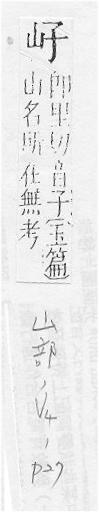 㞨
即里切音子玉篇
山名所在無考
山部, V4, p27